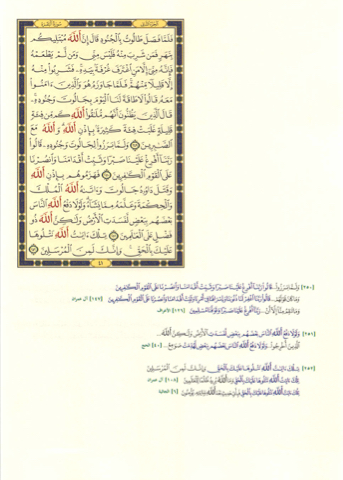 سورة البقرة
الجزء الثاني
فَلَمَّا فَصَلَ طَالُوتُ بِالْجُنُودِ قَالَ إِنَّ اللَّهَ مُبْتَلِيكُم
بِنَهَرٍ فَمَن شَرِبَ مِنْهُ فَلَيْسَ مِنِّي وَمَن لَّمْ يَطْعَمْهُ
فَإِنَّهُ مِنِّي إِلَّا مَنِ اغْتَرَفَ غُرْفَةً بِيَدِهِ فَشَرِبُوا مِنْهُ
إِلَّا قَلِيلًا مِّنْهُمْ فَلَمَّا جَاوَزَهُ هُوَ وَالَّذِينَ ءَامَنُوا
مَعَهُ قَالُوا لَا طَاقَةَ لَنَا الْيَوْمَ بِجَالُوتَ وَجُنُودِهِ
قَالَ الَّذِينَ يَظُنُّونَ أَنَّهُم مُّلَاقُوا اللَّهِ كَم مِّن فِئَةٍ
قَلِيلَةٍ غَلَبَتْ فِئَةً كَثِيرَةً بِإِذْنِ اللَّهِ وَاللَّهُ مَعَ
الصَّابِرِينَ ٢٤٩ وَلَمَّا بَرَزُوا لِجَالُوتَ وَجُنُودِهِ قَالُوا
رَبَّنَا أَفْرِغْ عَلَيْنَا صَبْرًا وَثَبِّتْ أَقْدَامَنَا وَانصُرْنَا
عَلَى الْقَوْمِ الْكَافِرِينَ ٢٥٠ فَهَزَمُوهُم بِإِذْنِ اللَّهِ
وَقَتَلَ دَاوُودُ جَالُوتَ وَءَاتَاهُ اللَّهُ الْمُلْكَ
وَالْحِكْمَةَ وَعَلَّمَهُ مِمَّا يَشَاءُ وَلَوْلَا دَفْعُ اللَّهِ النَّاسَ
بَعْضَهُم بِبَعْضٍ لَّفَسَدَتِ الْأَرْضُ وَلَٰكِنَّ اللَّهَ ذُو
فَضْلٍ عَلَى الْعَالَمِينَ ٢٥١ تِلْكَ ءَايَاتُ اللَّهِ نَتْلُوهَا
عَلَيْكَ بِالْحَقِّ وَإِنَّكَ لَمِنَ الْمُرْسَلِينَ ٢٥٢
٤١
[٢٥٠] وَلَمَّا بَرَزُوا قَالُوا رَبَّنَا أَفْرِغْ عَلَيْنَا صَبْرًا وَثَبِّتْ أَقْدَامَنَا وَانصُرْنَا عَلَى الْقَوْمِ الْكَافِرِينَ
[١٤٧] آل عمران
[١٢٦] الأعراف
[٢٥١] وَلَوْلَا دَفْعُ اللَّهِ النَّاسَ بَعْضَهُم بِبَعْضٍ لَّفَسَدَتِ الْأَرْضُ وَلَٰكِنَّ اللَّهَ
الَّذِينَ أُخْرِجُوا وَلَوْلَا دَفْعُ اللَّهِ النَّاسَ بَعْضَهُم بِبَعْضٍ لَّهُدِّمَتْ صَوَامِعُ [٤٠] الحج
[٢٥٢] تِلْكَ ءَايَاتُ اللَّهِ نَتْلُوهَا عَلَيْكَ بِالْحَقِّ وَإِنَّكَ لَمِنَ الْمُرْسَلِينَ
تِلْكَ ءَايَاتُ اللَّهِ نَتْلُوهَا عَلَيْكَ بِالْحَقِّ وَمَا اللَّهُ يُرِيدُ ظُلْمًا لِّلْعَالَمِينَ [١٠٨] آل عمران
تِلْكَ ءَايَاتُ اللَّهِ نَتْلُوهَا عَلَيْكَ بِالْحَقِّ [٦] الجاثية